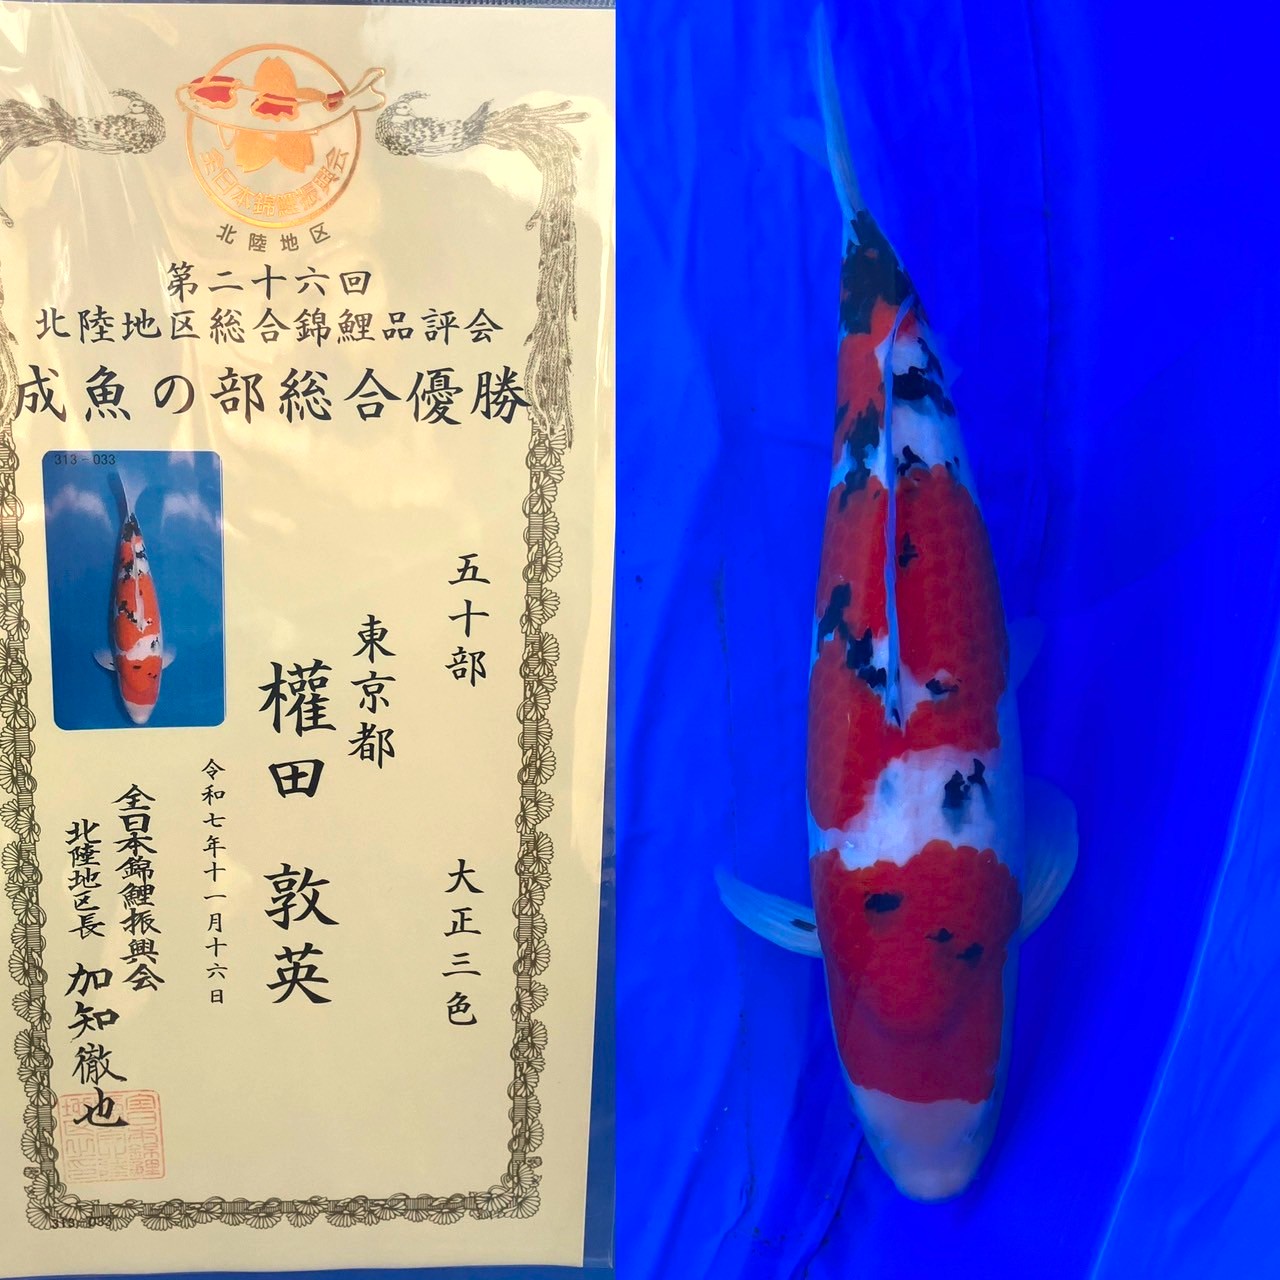 全日本錦鯉振興会
北陸地区
第二十六回
北陸地区総合錦鯉品評会
成魚の部総合優勝
313-033
五十部 大正三色
東京都
權田 敦英
令和七年十一月十六日
全日本錦鯉振興会
北陸地区長 加知徹也
313-033